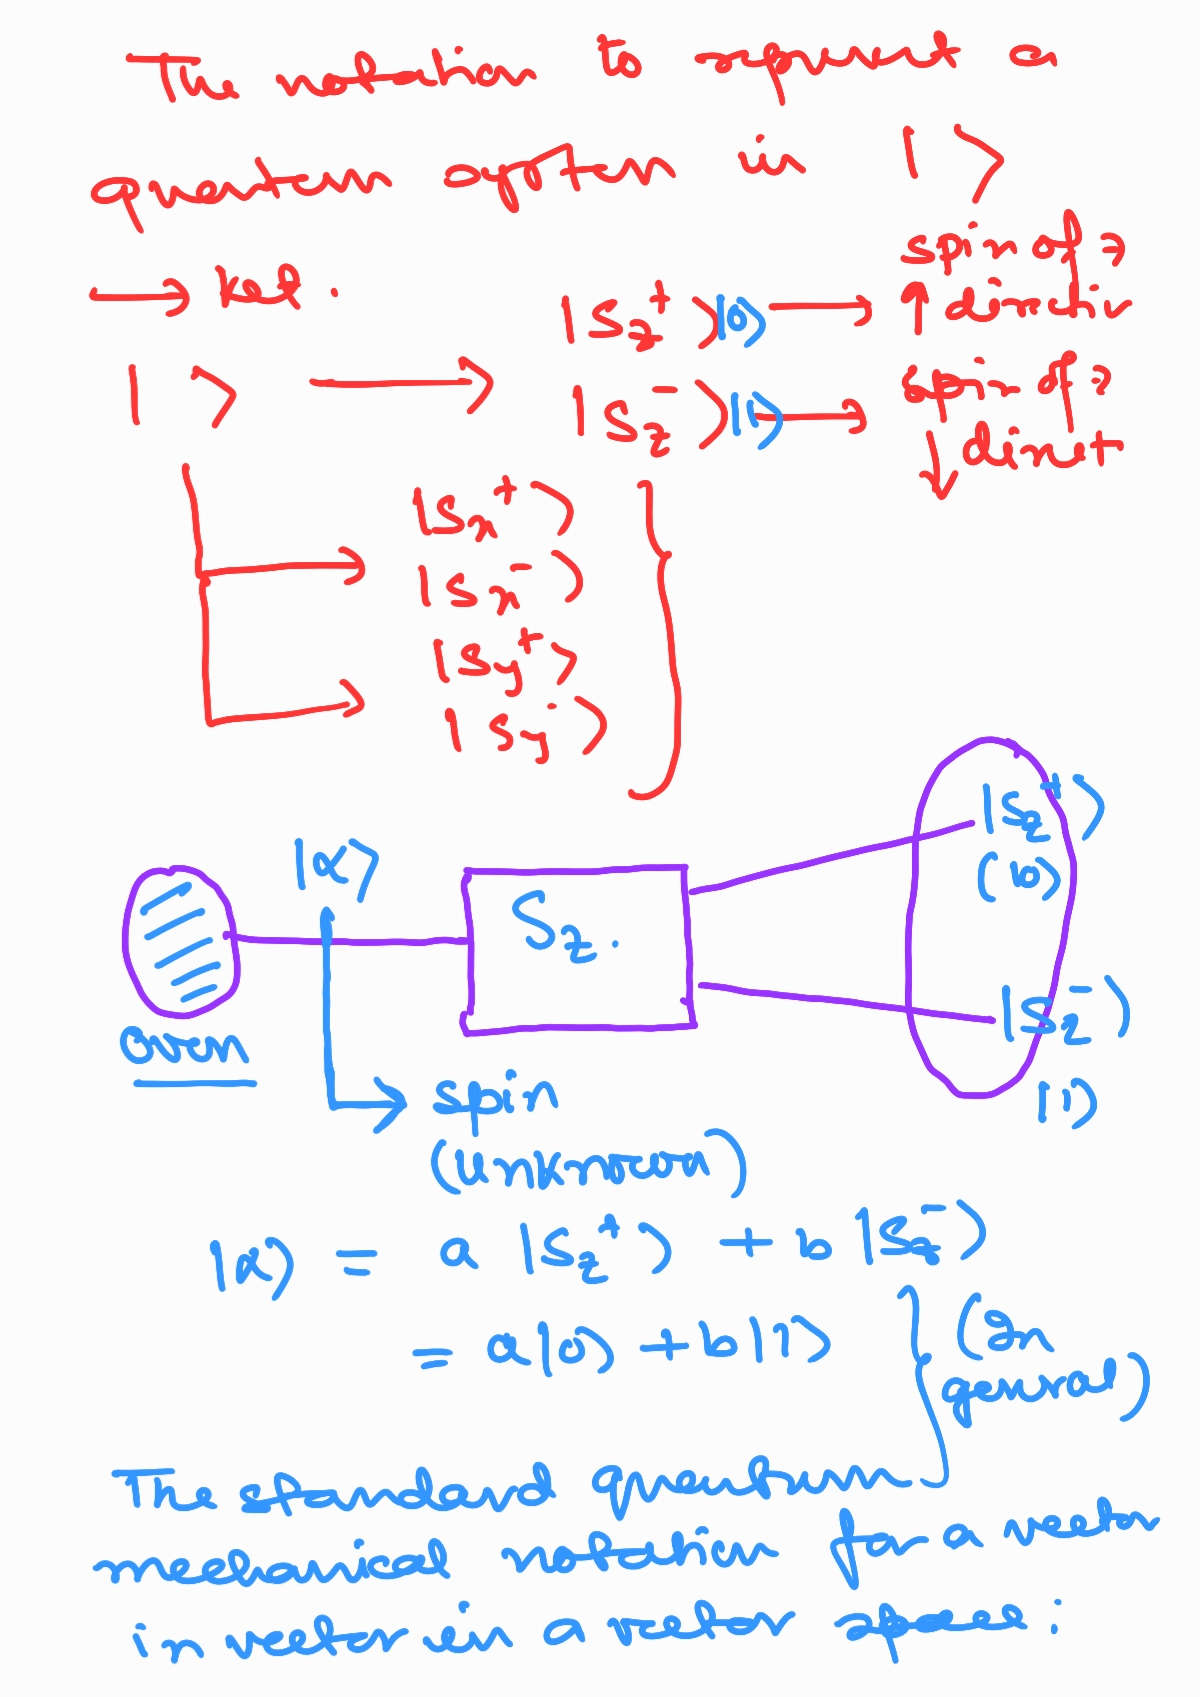 The notation to represent a
quantum system is | ⟩
→ ket.
|S_z^+⟩ |0⟩ → spin of ↑ direction
| ⟩ → |S_z^-⟩ |1⟩ → spin of ↓ direct
|S_x^+⟩
|S_x^-⟩
|S_y^+⟩
|S_y^-⟩
|α⟩
S_z.
|S_z^+⟩
(|0⟩
|S_z^-⟩
|1⟩
oven
spin
(unknown)
|α⟩ = a |S_z^+⟩ + b |S_z^-⟩
= a|0⟩ + b|1⟩
(In
general)
The standard quantum
mechanical notation for a vector
in vector in a vector space: